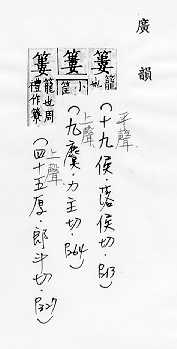 廣韻
簍籠也
平聲
(十九侯.落侯切.P213)
簍小筐
上聲
(九麌.力主切.P264)
簍籠也周禮作
上聲
(四十五厚.郎斗切.P327)